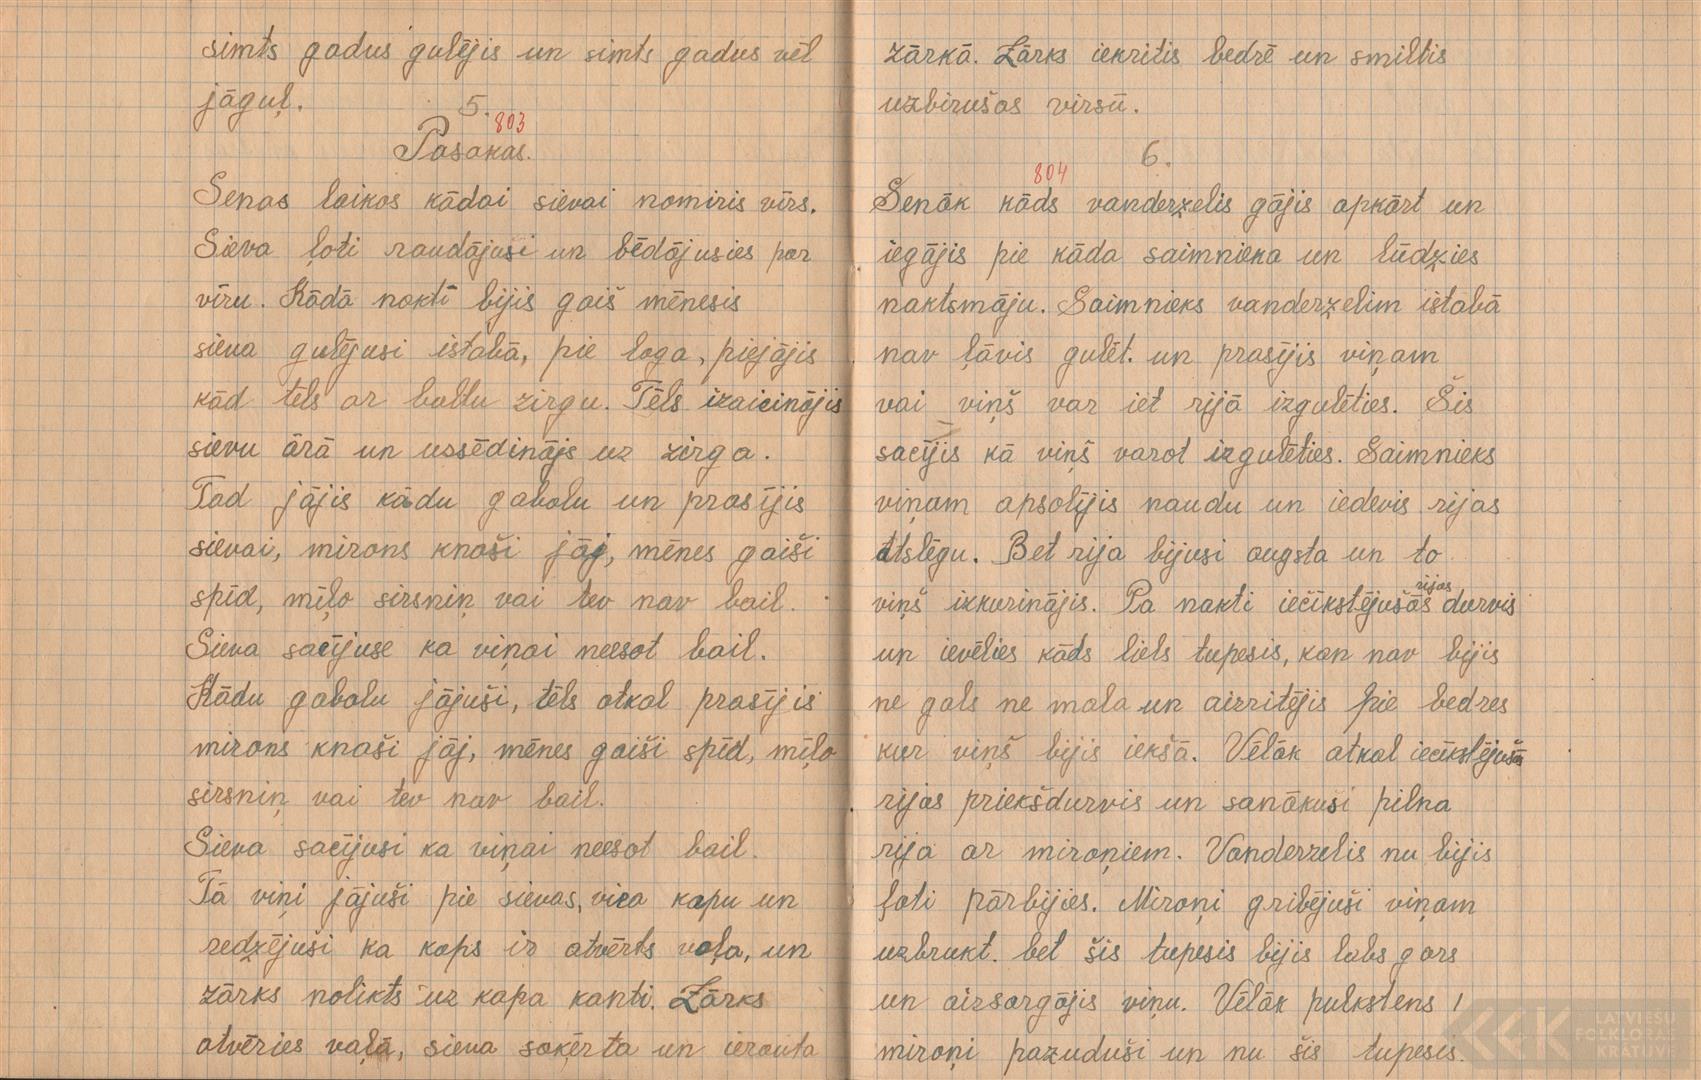 simts gadus gulējis un simts gadus vēl
jāguļ.
5.
803
Pasakas.
Senos laikos kādai sievai nomiris vīrs.
Sieva ļoti raudājusi un bēdājusies par
vīru. Kādā naktī bijis gaiš mēnesis
sieva gulējusi istabā, pie loga, piejājis
kād tēls ar baltu zirgu. Tēls izaicinājis
sievu ārā un ussēdinājs uz zirga.
Tad jājis kādu gabalu un prasījis
sievai, mirons knaši jāj, mēnes gaiši
spīd, mīļo sirsniņ vai tev nav bail.
Sieva sacījuse ka viņai neesot bail.
Kādu gabalu jājuši, tēls atkal prasījis
mirons knaši jāj, mēnes gaiši spīd, mīļo
sirsniņ vai tev nav bail.
Sieva sacījusi ka viņai neesot bail.
Tā viņi jājuši pie sievas, vīra kapu un
redzējuši ka kaps ir atvērts vaļa, un
zārks nolikts uz kapa kanti. Zārks
atvēries vaļā, sieva saķērta un ierauta
zārkā. Zārks iekritis bedrē un smiltis
uzbirušas virsū.
6.
804
Senāk kāds vanderzelis gājis apkārt un
iegājis pie kāda saimnieka un lūdzies
naktsmāju. Saimnieks vanderzelim istabā
nav ļāvis gulēt. un prasījis viņam
vai viņš var iet rijā izgulēties. Šis
sacījis kā viņš varot izgulēties. Saimnieks
viņam apsolījis naudu un iedevis rijas
atslēgu. Bet rija bijusi augsta un to
viņš izkurinājis. Pa nakti iečīkstējušās rijas durvis
un ievēlies kāds liels tupesis, kan nav bijis
ne gals ne mala un airritējis pie bedres
kur viņš bijis iekšā. Vēlāk atkal iečīkstējušās
rijas priekšdurvis un sanākuši pilna
rija ar miroņiem. Vanderzelis nu bijis
ļoti pārbijies. Miroņi gribējuši viņam
uzbrukt. bet šis tupesis bijis labs gars
un aizsargājis viņu. Vēlāk pulkstens 1
miroņi pazuduši un nu šis tupesis.
LATVIEŠU
FOLKLORAS
KRĀTUVE